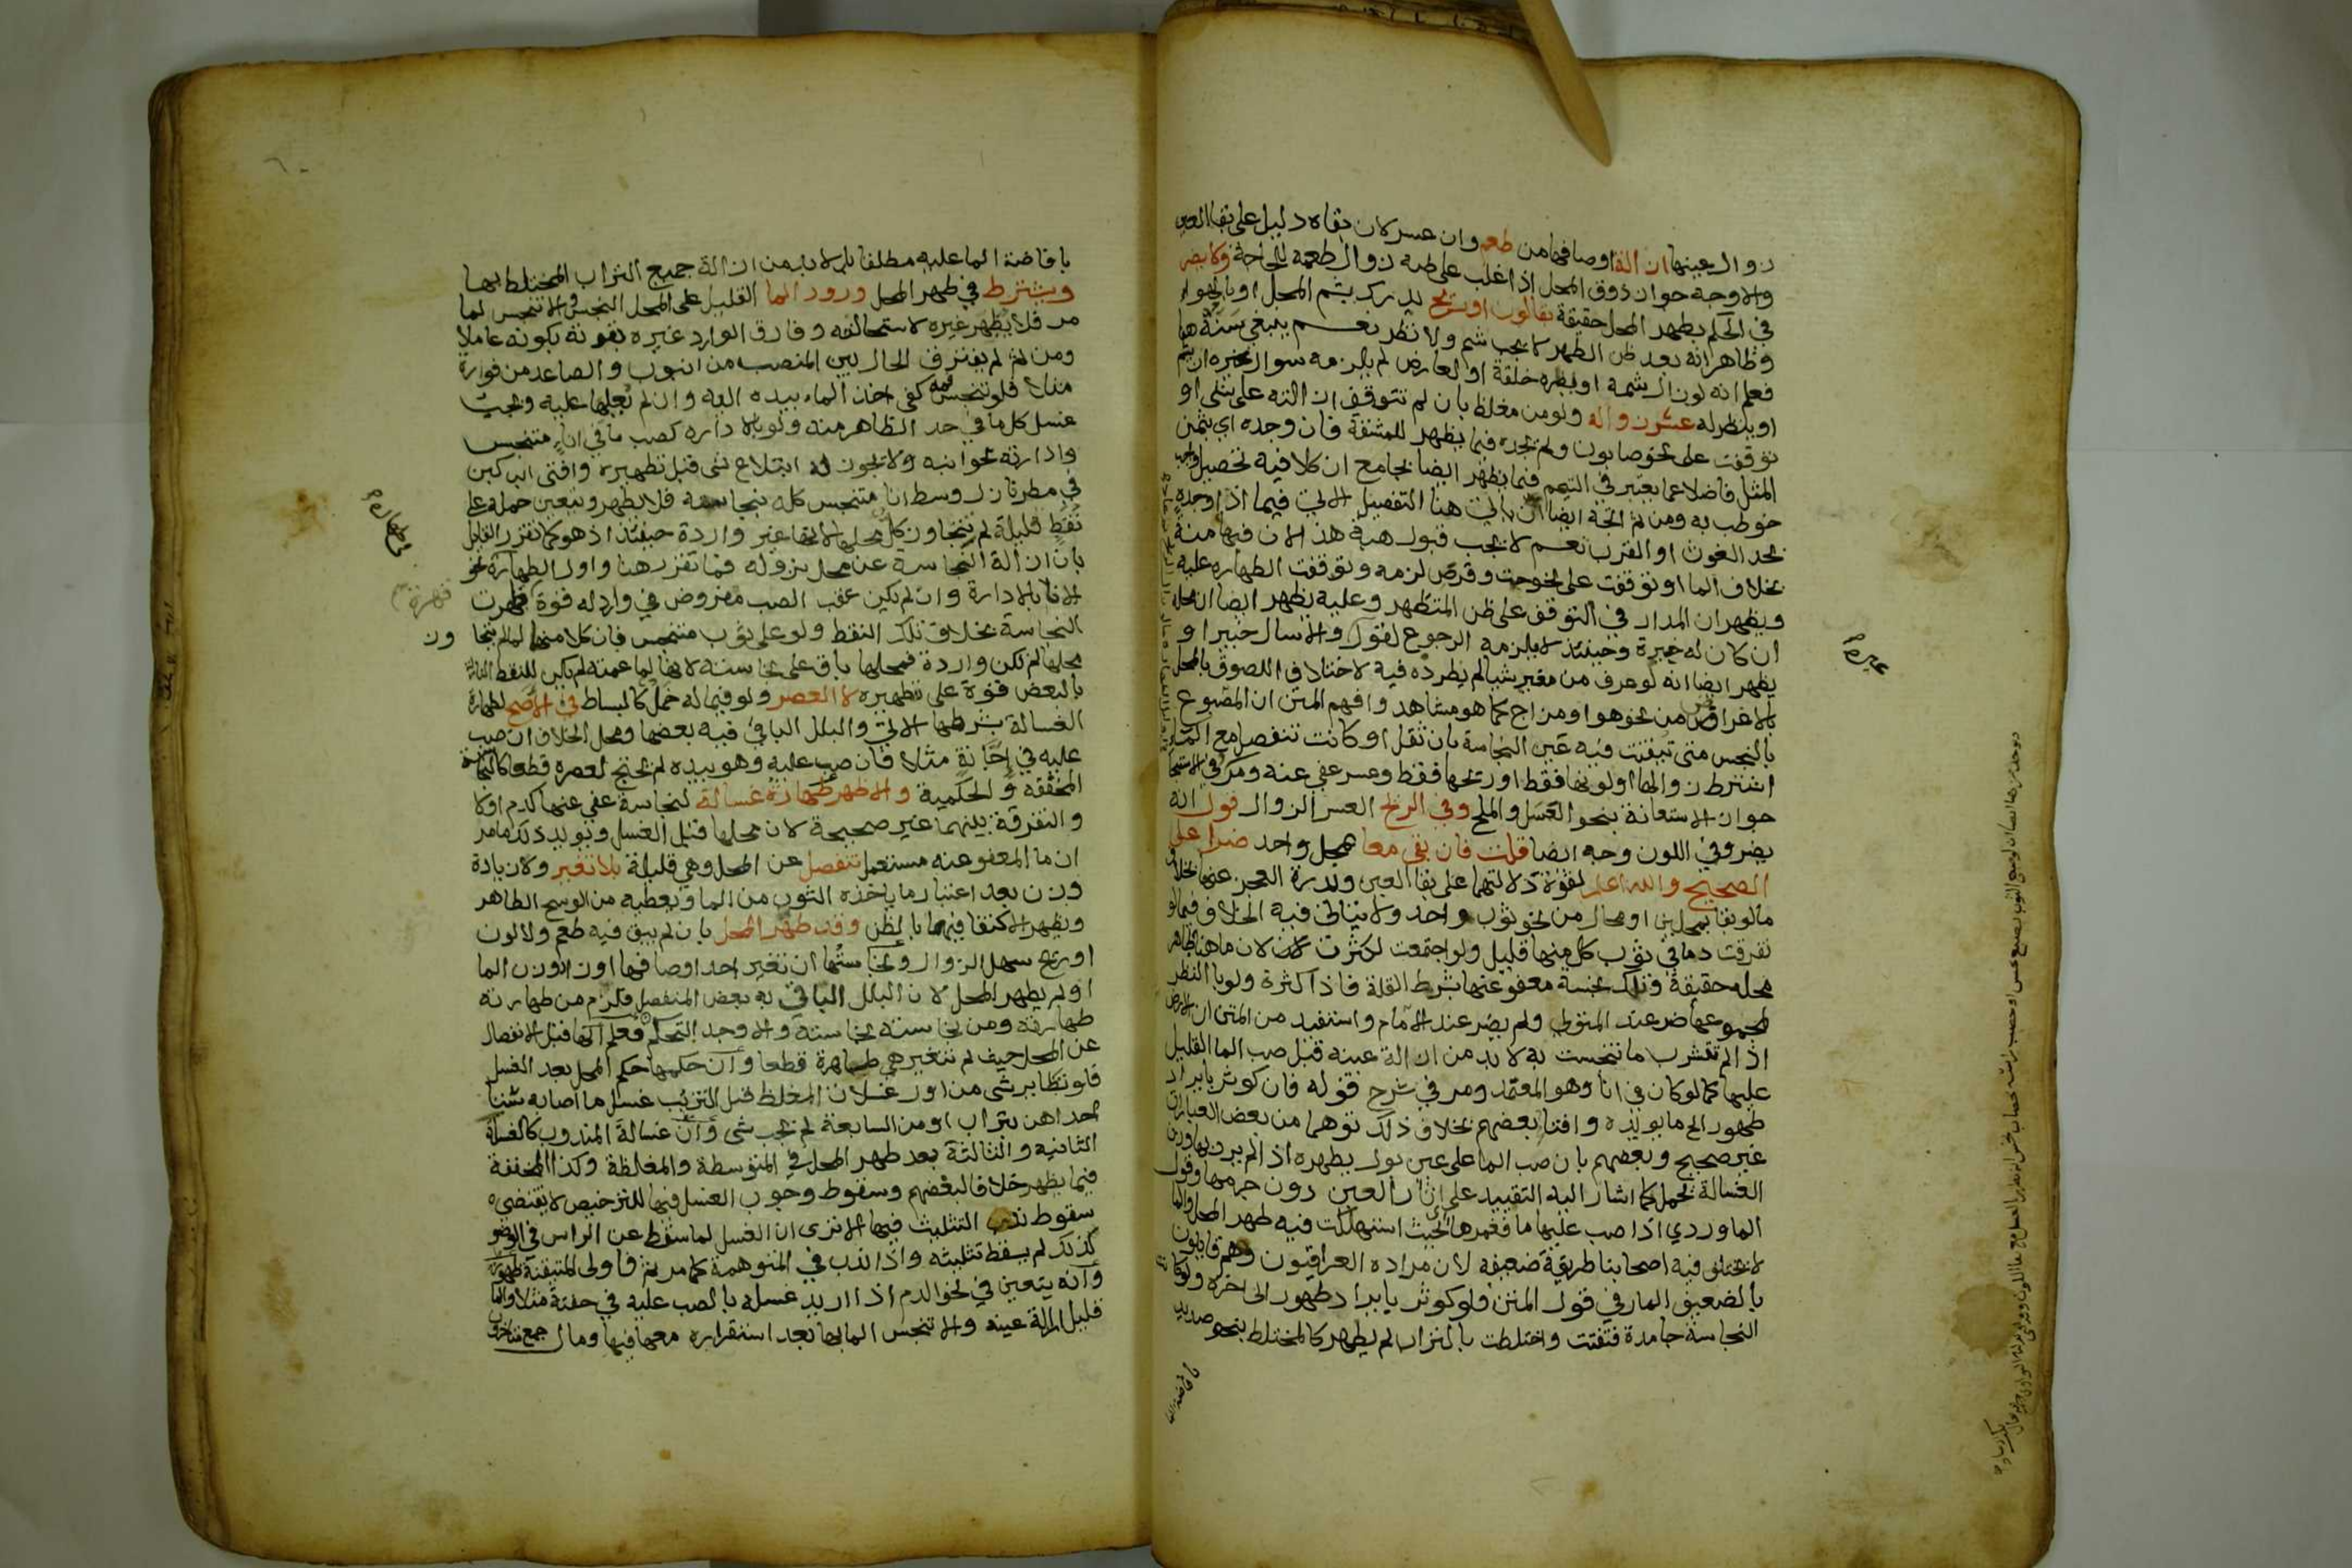 زوال عينها ازالة اوصافها من طعم وان عسر لان بقاه دليل على بقا العين
والاوجه جواز ذوق المحل اذا غلب على ظنه زوال طعمه للحاجة ولا يضر
في الحكم بطهر المحل حقيقة بقا لون او ريح يدرك بشم المحل او بالهواء
وظاهر انه بعد ظن الطهر لا يجب شم ولا نظر نعم ينبغي سنه هنا
فعلم انه لو زال شمه او بصره خلقة او لعارض لم يلزمه سوال غيره ان يشم
او ينظر له عسر زواله ولو من مغلظ بان لم تتوقف ازالته على شى او
توقفت على نحو صابون ولم يجده فيما يظهر للمشقة فان وجده اي بثمن
المثل فاضلا عما يعتبر في التيمم فيما يظهر ايضا بجامع ان كلا فيه تحصيل واجب
خوطب به ومن ثم اتجه ايضا ان ياتي هنا التفصيل الاتي فيما اذا وجده
بحد الغوث او القرب نعم لا يجب قبول هبة هذا لان فيها منة
بخلاف الما او توقفت على نحو حت وقرص لزمه وتوقفت الطهارة عليه
ويظهر ان المدار في التوقف على ظن المتطهر وعليه يظهر ايضا ان محله
ان كان له خبرة وحينئذ لا يلزمه الرجوع لقول والا سال خبيرا و
يظهر ايضا انه لو عرف من مغير شيا لم يطرده فيه لاختلاف اللصوق بالمحل
بالاغراض من نحو هوا ومزاج كما هو مشاهد وافهم المتن ان المصبوغ
بالنجس متى تيقنت فيه عين النجاسة بان ثقل او كانت تنفصل مع الما
اشترط زوالها او لونها فقط او ريحها فقط وعسر عفي عنه ومر في الاستنجا
جواز الاستعانة بنحو العسل والملح وفي الريح العسر الزوال قول انه
يضر وفي اللون وجه ايضا قلت فان بقي معا بمحل واحد ضرا على
الصحيح والله اعلم لقوة دلالتهما على بقا العين وندرة العجز عنهما بخلاف
ما لو بقيا بمحلين او محال من نحو ثوب واحد ولا يتاتى فيه الخلاف فيما لو
تفرقت دما في ثوب كل منها قليل ولو اجتمعت لكثرت لان ما هنا طاهر
محله حقيقة وتلك نجسة معفو عنها بشرط القلة فاذا كثرة ولو بالنظر
لمجموعها ضر عند المتولي ولم يضر عند الامام واستفيد من المتن ان الارض
اذا لم تتشرب ما تنجست به لا بد من ازالة عينه قبل صب الما القليل
عليها كما لو كان في انا وهو المعتمد ومر في شرح قوله فان كوثر بايراد
طهور الخ ما يويده وافتا بعضهم بخلاف ذلك توهما من بعض العبارات
غير صحيح وبعضهم بان صب الما على عين بول يطهره اذا لم يرد بها وزن
الغسالة يحمل كما اشار اليه التقييد على اثار العين دون جرمها وقول
الماوردي اذا صب عليها ما فغمرها اي بحيث استهلكت فيه طهر المحل والما
لا يختلف فيه اصحابنا طريقة ضعيفه لان مراده العراقيون وهم قايلون
بالضعيف المار في قول المتن فلو كوثر بايراد طهور الى اخره ولو كا
النجاسة جامدة فتفتت واختلطت بالتراب لم يطهر كالمختلط بنحو صديد
بافاضة الما
بافاضة الما عليه مطلقا بل لا بد من ازالة جميع التراب المختلط بها
ويشترط في طهر المحل ورود الما القليل على المحل النجس والا تنجس لما
مر فلا يطهر غيره لاستحالته وفارق الوارد غيره بقوته بكونه عاملا
ومن ثم لم يفترق الحال بين المنصب من انبوب والصاعد من فوارة
مثلا فلو تنجس فمه كفى اخذ الماء بيده اليه وان لم يعلها عليه ويجب
غسل كل ما في حد الظاهر منه ولو بالادارة كصب ما في اناء متنجس
وادارته بجوانبه ولا يجوز له ابتلاع شى قبل تطهيره وافتى ابن كبن
في مطر نازل وسط انا متنجس كله بنجاسة فلا يطهر ويتعين حمله على
نقط قليلة لم تتجاوز كل محلها لانها غير واردة حينئذ اذ هو كما تقرر القليل
بان ازالة النجاسة عن محل نزوله فما تقرر هنا واول الطهارة نحو
الانا بالادارة وان لم يكن عقب الصب مفروض في وارد له قوة قهرت
النجاسة بخلاف تلك النقط ولو على ثوب متنجس فان كلا منها لما لم يتجا وز
محلها لم تكن واردة فمحلها باق على نجاسته لانها لما عمته لم يكن للنقط
بالبعض قوة على تطهيره لا العصر ولو فيما له خمل كالبساط في الاصح لطهارة
الغسالة بشرطها الاتي والبلل الباقي فيه بعضها ومحل الخلاف ان صب
عليه في اجانة مثلا فان صب عليه وهو بيده لم يحتج لعصره قطعا كالنجاسة
المخففة والحكمية والاظهر طهارة غسالة لنجاسة عفي عنها كدم او لا
والتفرقة بينهما غير صحيحة لان محلها قبل الغسل ويويد ذلك ما مر
ان ما المعفو عنه مستعمل تنفصل عن المحل وهي قليلة بلا تغير ولا زيادة
وزن بعد اعتبار ما ياخذه الثوب من الما ويعطيه من الوسخ الطاهر
ويظهر الاكتفا فيهما بالظن وقد طهر المحل بان لم يبق فيه طعم ولا لون
او ريح سهل الزوال ونجاستها ان تغير احد اوصافها او زاد وزن الما
او لم يطهر المحل لان البلل الباقي به بعض المنفصل فلزم من طهارته
طهارته ومن نجاسته نجاسته والا وجد التحكم فعلم انها قبل الانفصال
عن المحل حيث لم تتغير هي طاهرة قطعا وان حكمها حكم المحل بعد الغسل
فلو تطاير شى من اول غسلات المغلظ قبل التتريب غسل ما اصابه ستا
احداهن بتراب او من السابعة لم يجب شى وان غسالة المندوب كالغسلة
الثانيه والثالثة بعد طهر المحل في المتوسطة والمغلظة وكذا المخففة
فيما يظهر خلافا لبعضهم وسقوط وجوب الغسل فيها للترخيص لا يقتضي
سقوط ندب التثليث فيها الا ترى ان الغسل لما سقط عن الراس في الوضو
كذلك لم يسقط تثليثه واذا ندب في المتوهمة كما مر فاولى المتيقنة
وانه يتعين في نحو الدم اذا اريد غسله بالصب عليه في جفنة مثلا والما
قليل ازالة عينه والا تنجس الما بها بعد استقراره معها فيها ومال جمع متاخرون